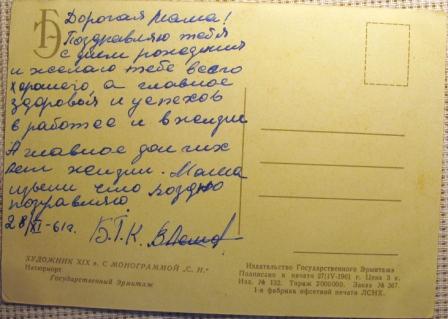 Дорогая Мама!
Поздравляю тебя
с днем рождения
и желаю тебе всего
хорошего, а главное
здоровья и успехов
в работе и в жизни
А главное долгих
лет жизни. Мама
извени что поздно
поздравляю.
28/XI-61г. Б.Г.К.
ХУДОЖНИК XIX в. С МОНОГРАММОЙ „С. Н."
Натюрморт
Государственный Эрмитаж
Издательство Государственного Эрмитажа
Подписано к печати 27/IV-1961 г. Цена 3 к.
Изд. № 132. Тираж 2000000. Заказ № 367.
1-я фабрика офсетной печати ЛСНХ.